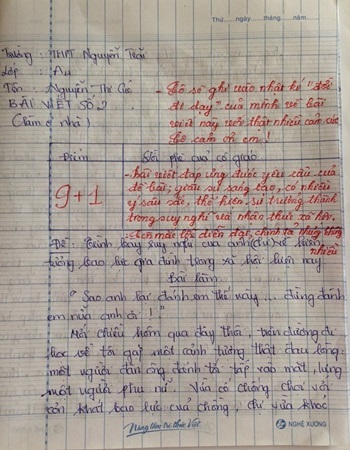 Thứ ngày tháng năm
Trường : THPT Nguyễn Trãi
Lớp : A4
Tên : Nguyễn Thị
BÀI VIẾT SỐ 2
(Làm ở nhà)
- Cô sẽ ghi vào nhật kí "đời
đi dạy" của mình về bài
viết này với thật nhiều cảm xúc
Cô cảm ơn em !
Điểm
Lời phê của cô giáo
9 + 1
- bài viết đáp ứng được yêu cầu của
đề bài, giàu sự sáng tạo, có nhiều
ý sâu sắc, thể hiện sự trưởng thành
trong suy nghĩ và nhận thức xã hội.
mắc lỗi diễn đạt, chính tả nhưng không
nhiều
Đề : Trình bày suy nghĩ của anh (chị) về hiện
tượng bạo lực gia đình trong xã hội hiện nay
Bài làm
" Sao anh lại đánh em thế này ... đừng đánh
em nữa anh ơi ! "
Mới chiều hôm qua đây thôi, trên đường đi
học về tôi gặp một cảnh tượng thật đau lòng :
một người đàn ông đánh tá tấp vào mặt, lưng
một người phụ nữ. Vừa cố chống chọi với
cơn khát bạo lực của chồng, chị vừa khóc
Nâng tầm tri thức Việt
NGHỆ XƯƠNG